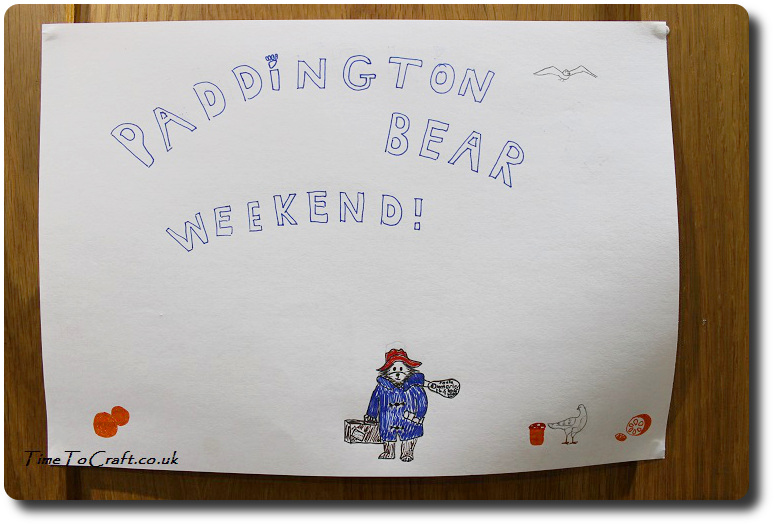 PADDiNGTON
BEAR
WEEKEND!
TimeToCraft.co.uk